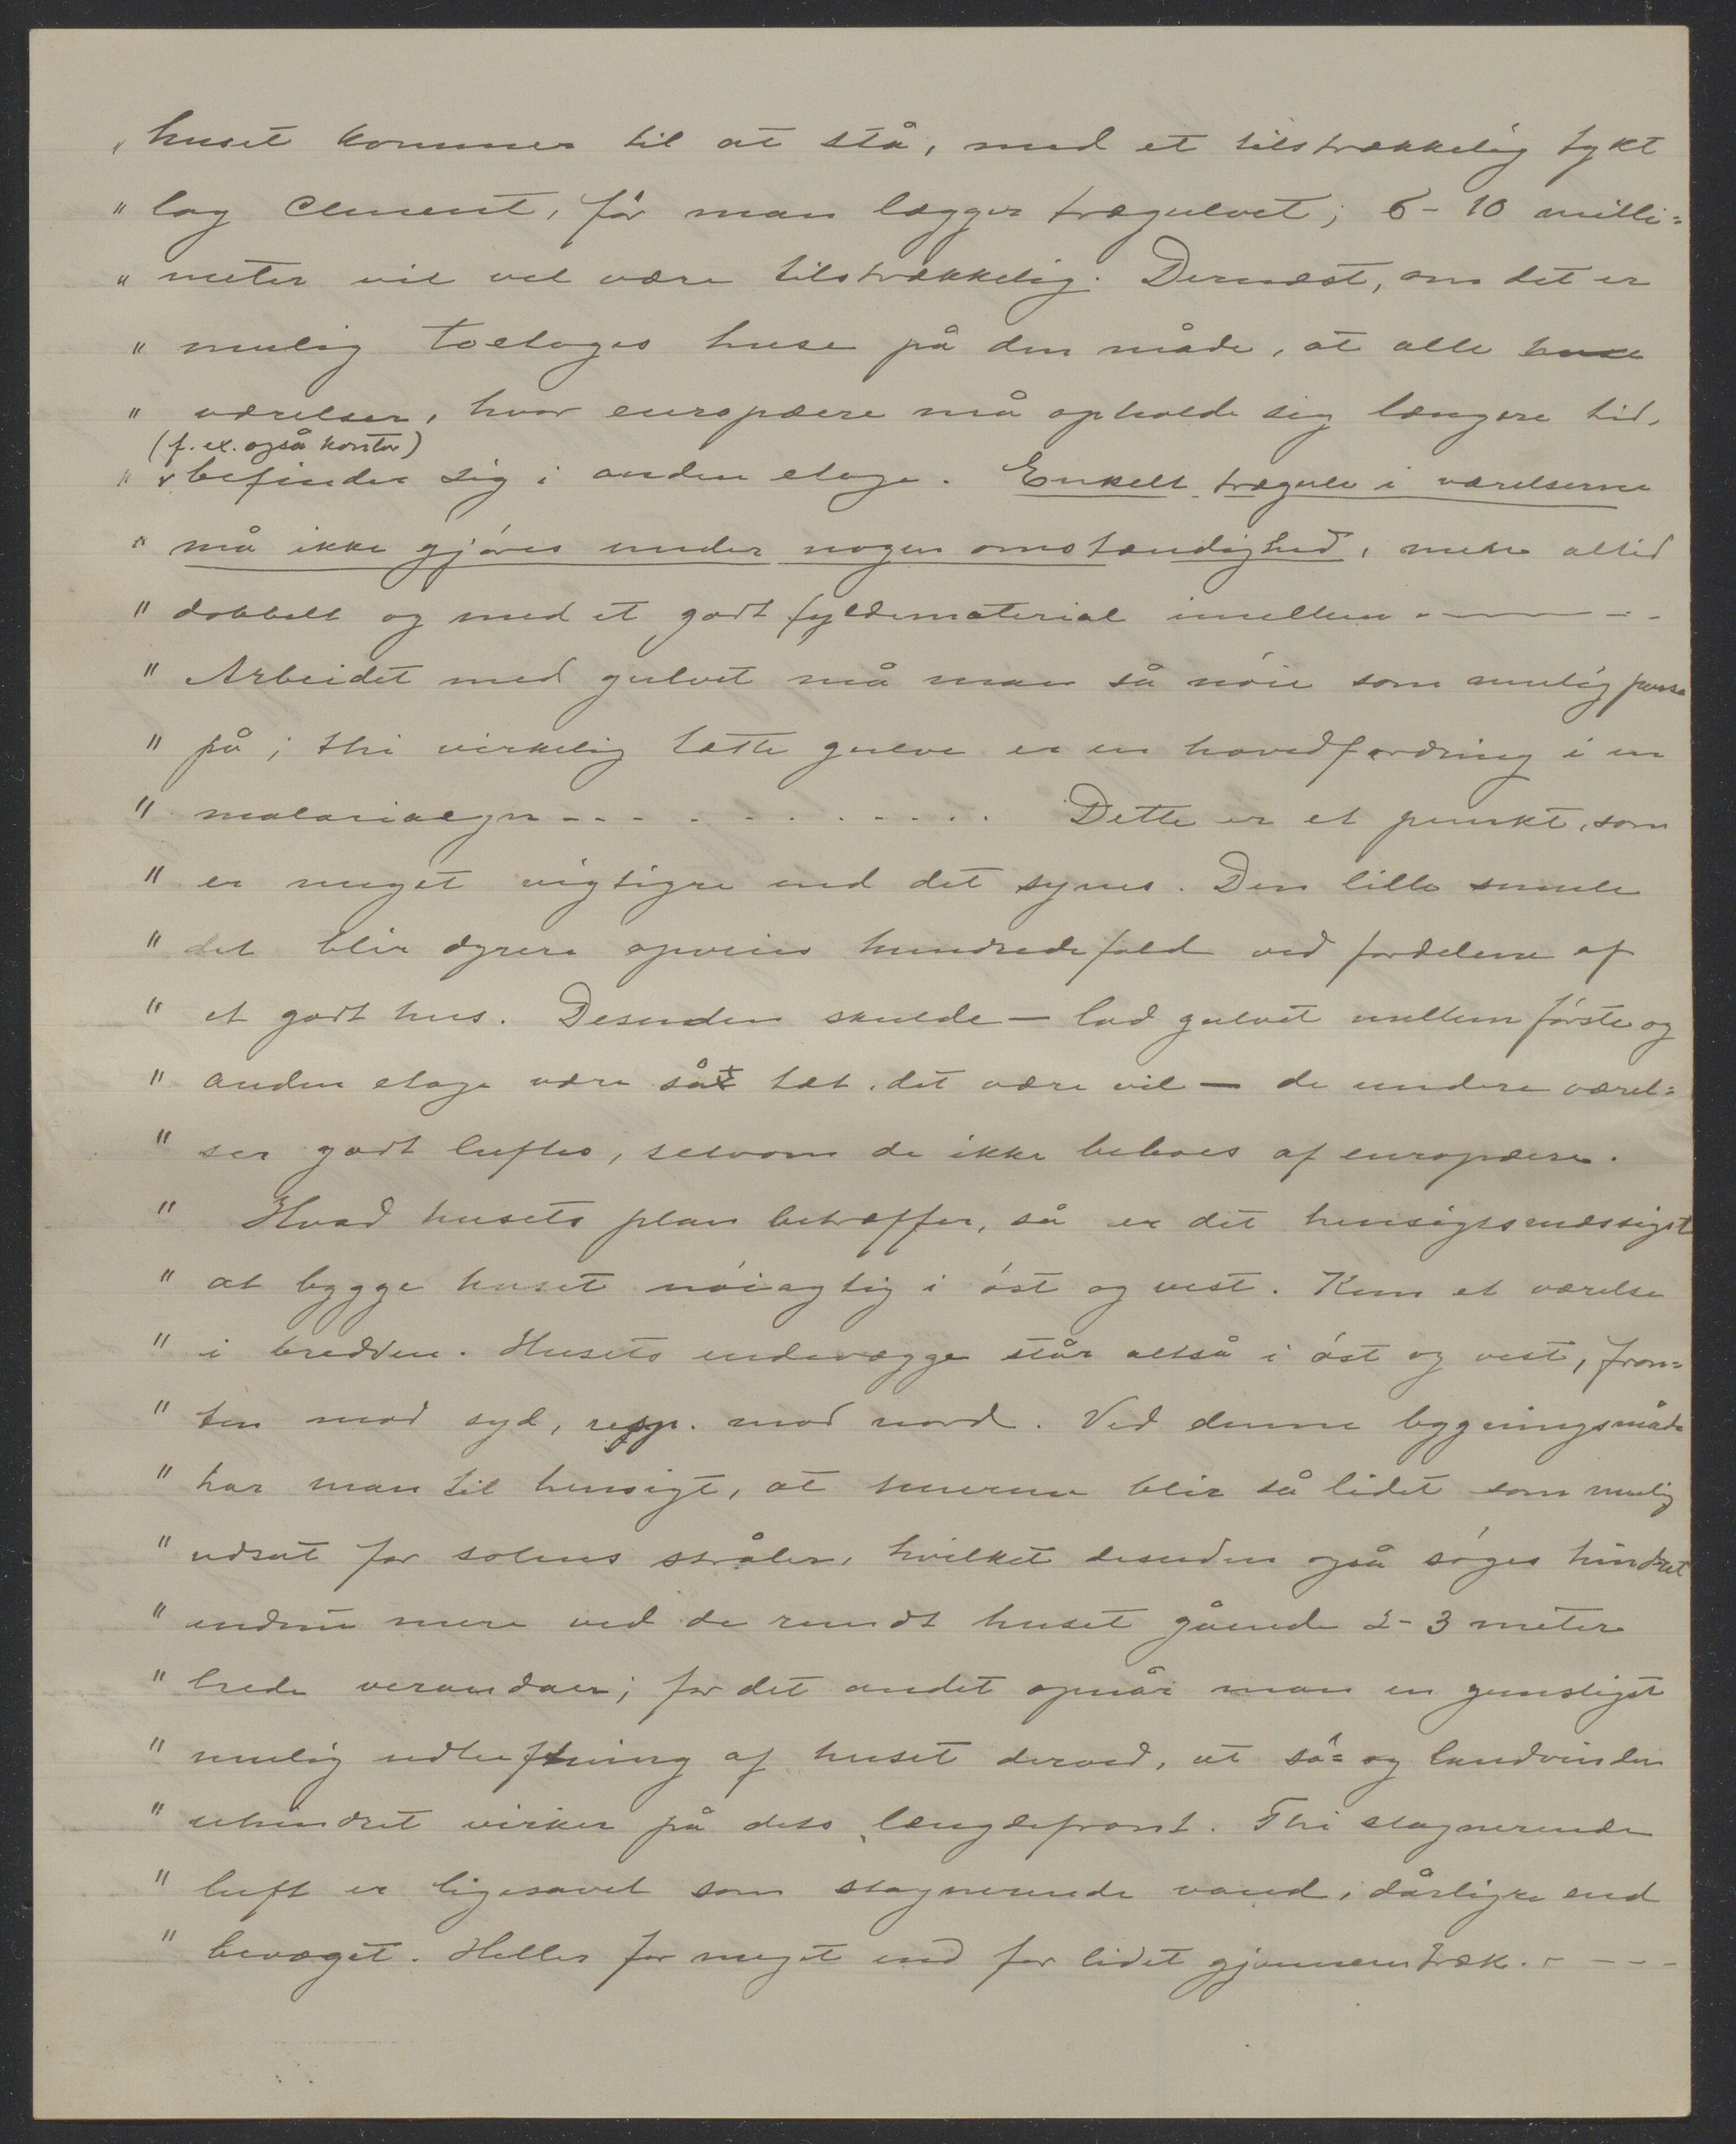 " huset kommer til at stå, med et tilstrækkelig tykt
" lag cement, før man lægger trægulvet; 6-10 milli=
" meter vil vel være tilstrækkelig. Dernæst, om det er
" mulig toetages huse på den måde, at alle huse
" værelser, hvor europæere må opholde sig længere tid,
(f. ex. også kontor)
" befinder sig i anden etage. Enkelt trægulv i værelserne
" må ikke gjøres under nogen omstændighed, men altid
" dobbelt og med et godt fyldemateriale imellem - — - -
" Arbeidet med gulvet må man så nøie som mulig passe
" på; thi virkelig tætte gulve er en hovedfordring i en
" malariaegn - - - - - - - - - - - Dette er et punkt, som
" er meget vigtigre end det synes. Den lille smule
" det blir dyrere opveies hundredefold ved fordelene af
" et godt hus. Desuden skulde — lad gulvet mellem første og
" anden etage være så tæt det være vil — de undere værel=
" ser godt luftes, selvom de ikke beboes af europæere.
" Hvad husets plan betræffer, så er det hensigtsmæssigst
" at bygge huset nøiagtig i øst og vest. Kun et værelse
" i bredden. Husets endevægge står altså i øst og vest, fron=
" ten mod syd, resp. mod nord. Ved denne bygningsmåde
" har man til hensigt, at murene blir så lidet som mulig
" udsat for solens stråler, hvilket desuden også søges hindret
" endnu mere ved de rundt huset gående 2-3 meter
" brede verandaer; for det andet opnår man en gunstigst
" mulig udluftning af huset derved, at sø= og landvinden
" uhindret virker på dets længdefront. Thi stagnerende
" luft er ligesavel som stagnerende vand, dårligre end
" bevæget. Heller for meget end for lidet gjennemtræk. - - - -